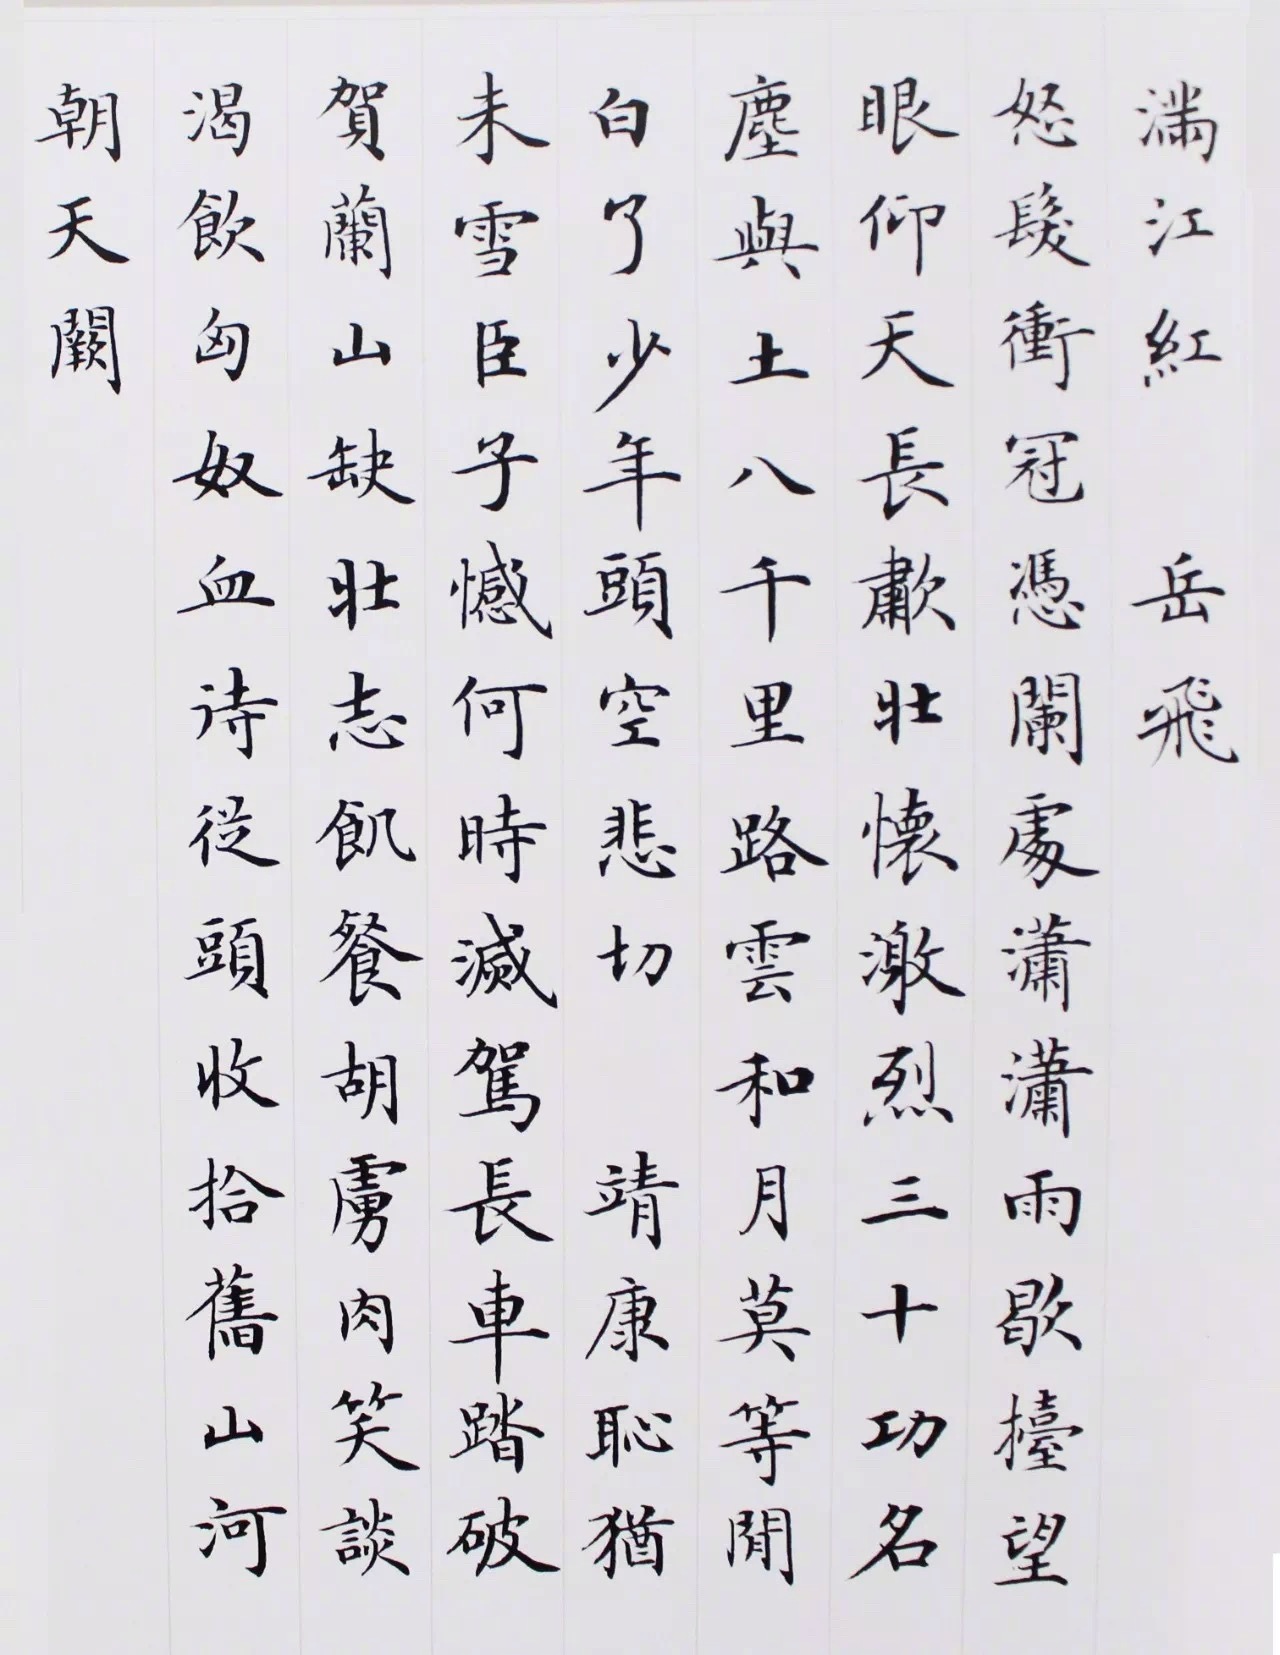 满江紅 岳飛
怒髮衝冠憑闌處瀟瀟雨歇擡望
眼仰天長歗壯懷激烈三十功名
塵與土八千里路雲和月莫等閒
白了少年頭空悲切 靖康恥猶
未雪臣子憾何時滅駕長車踏破
賀蘭山缺壯志飢餐胡虜肉笑談
渴飲匈奴血诗從頭收拾舊山河
朝天闕